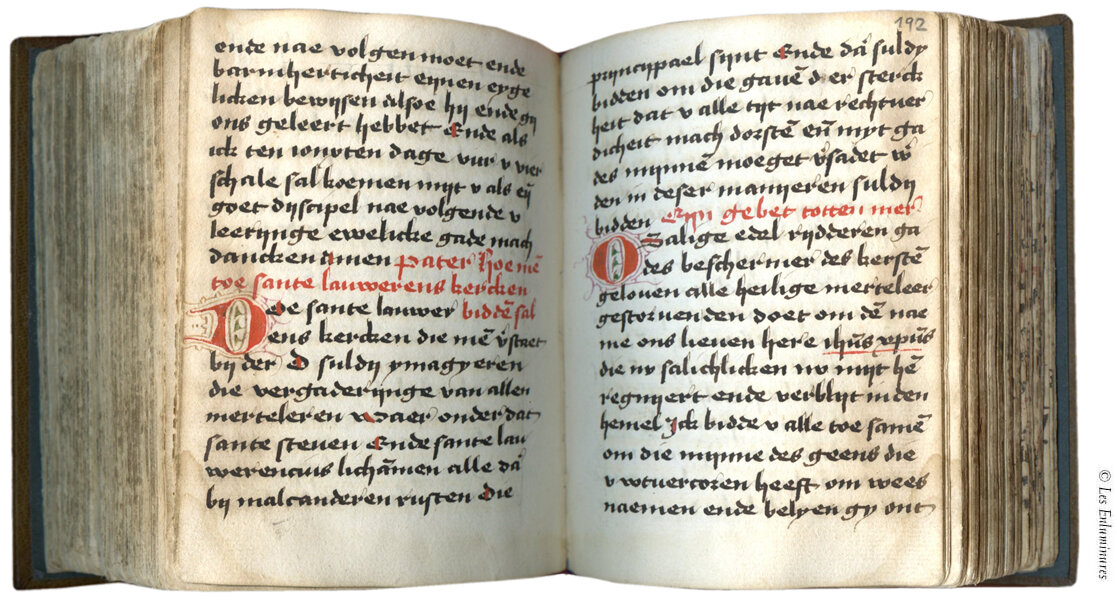 ende nae volgen moet ende
barmherticheit eynen eyge
licken bewijsen alsoe hij ende gij
ons geleert hebbet Ende als
ick ten ionxten dage vur v vier
schale sal koemen mijt v als eȳ
goet dijscipel nae volgende v
leerijnge ewelicke gade mach
dancken Amen Pater hoe mē
toe sante lauwerens kercken
Toe sante lauwer biddē sal
ens kercken die mē v̄staet
bij der D suldij ymagyeren
die vergaderijnge van allen
merteleren Waer onder dat
sante steuen Ende sante lau
werencius lichāmen alle dā
bij malcanderen rusten Die
192
prijncijpael sijnt Ende dā suldy
bidden om die gauē d er sterck
heit dat v alle tijt nae rechtuer
dicheit mach dorstē eñ myt ga
des mijnnē moeget v̄sadet w̄
den in deser manyeren suldij
bidden Eyn gebet totten mer
O Salige edel rijdderen ga
des beschermer des kerstē
gelouen alle heilige merteleer
gestoruen den doet om dē nae
me ons lieuen here ihūs xpūs
die nv salichlicken nv mijt hē
regnyert ende verblijt in den
hemel Jck bidde v alle toe samē
om die mijnne des geens die
v wtuercoren heeft om wees
naemen ende belyen gy ont
© Les Enluminures